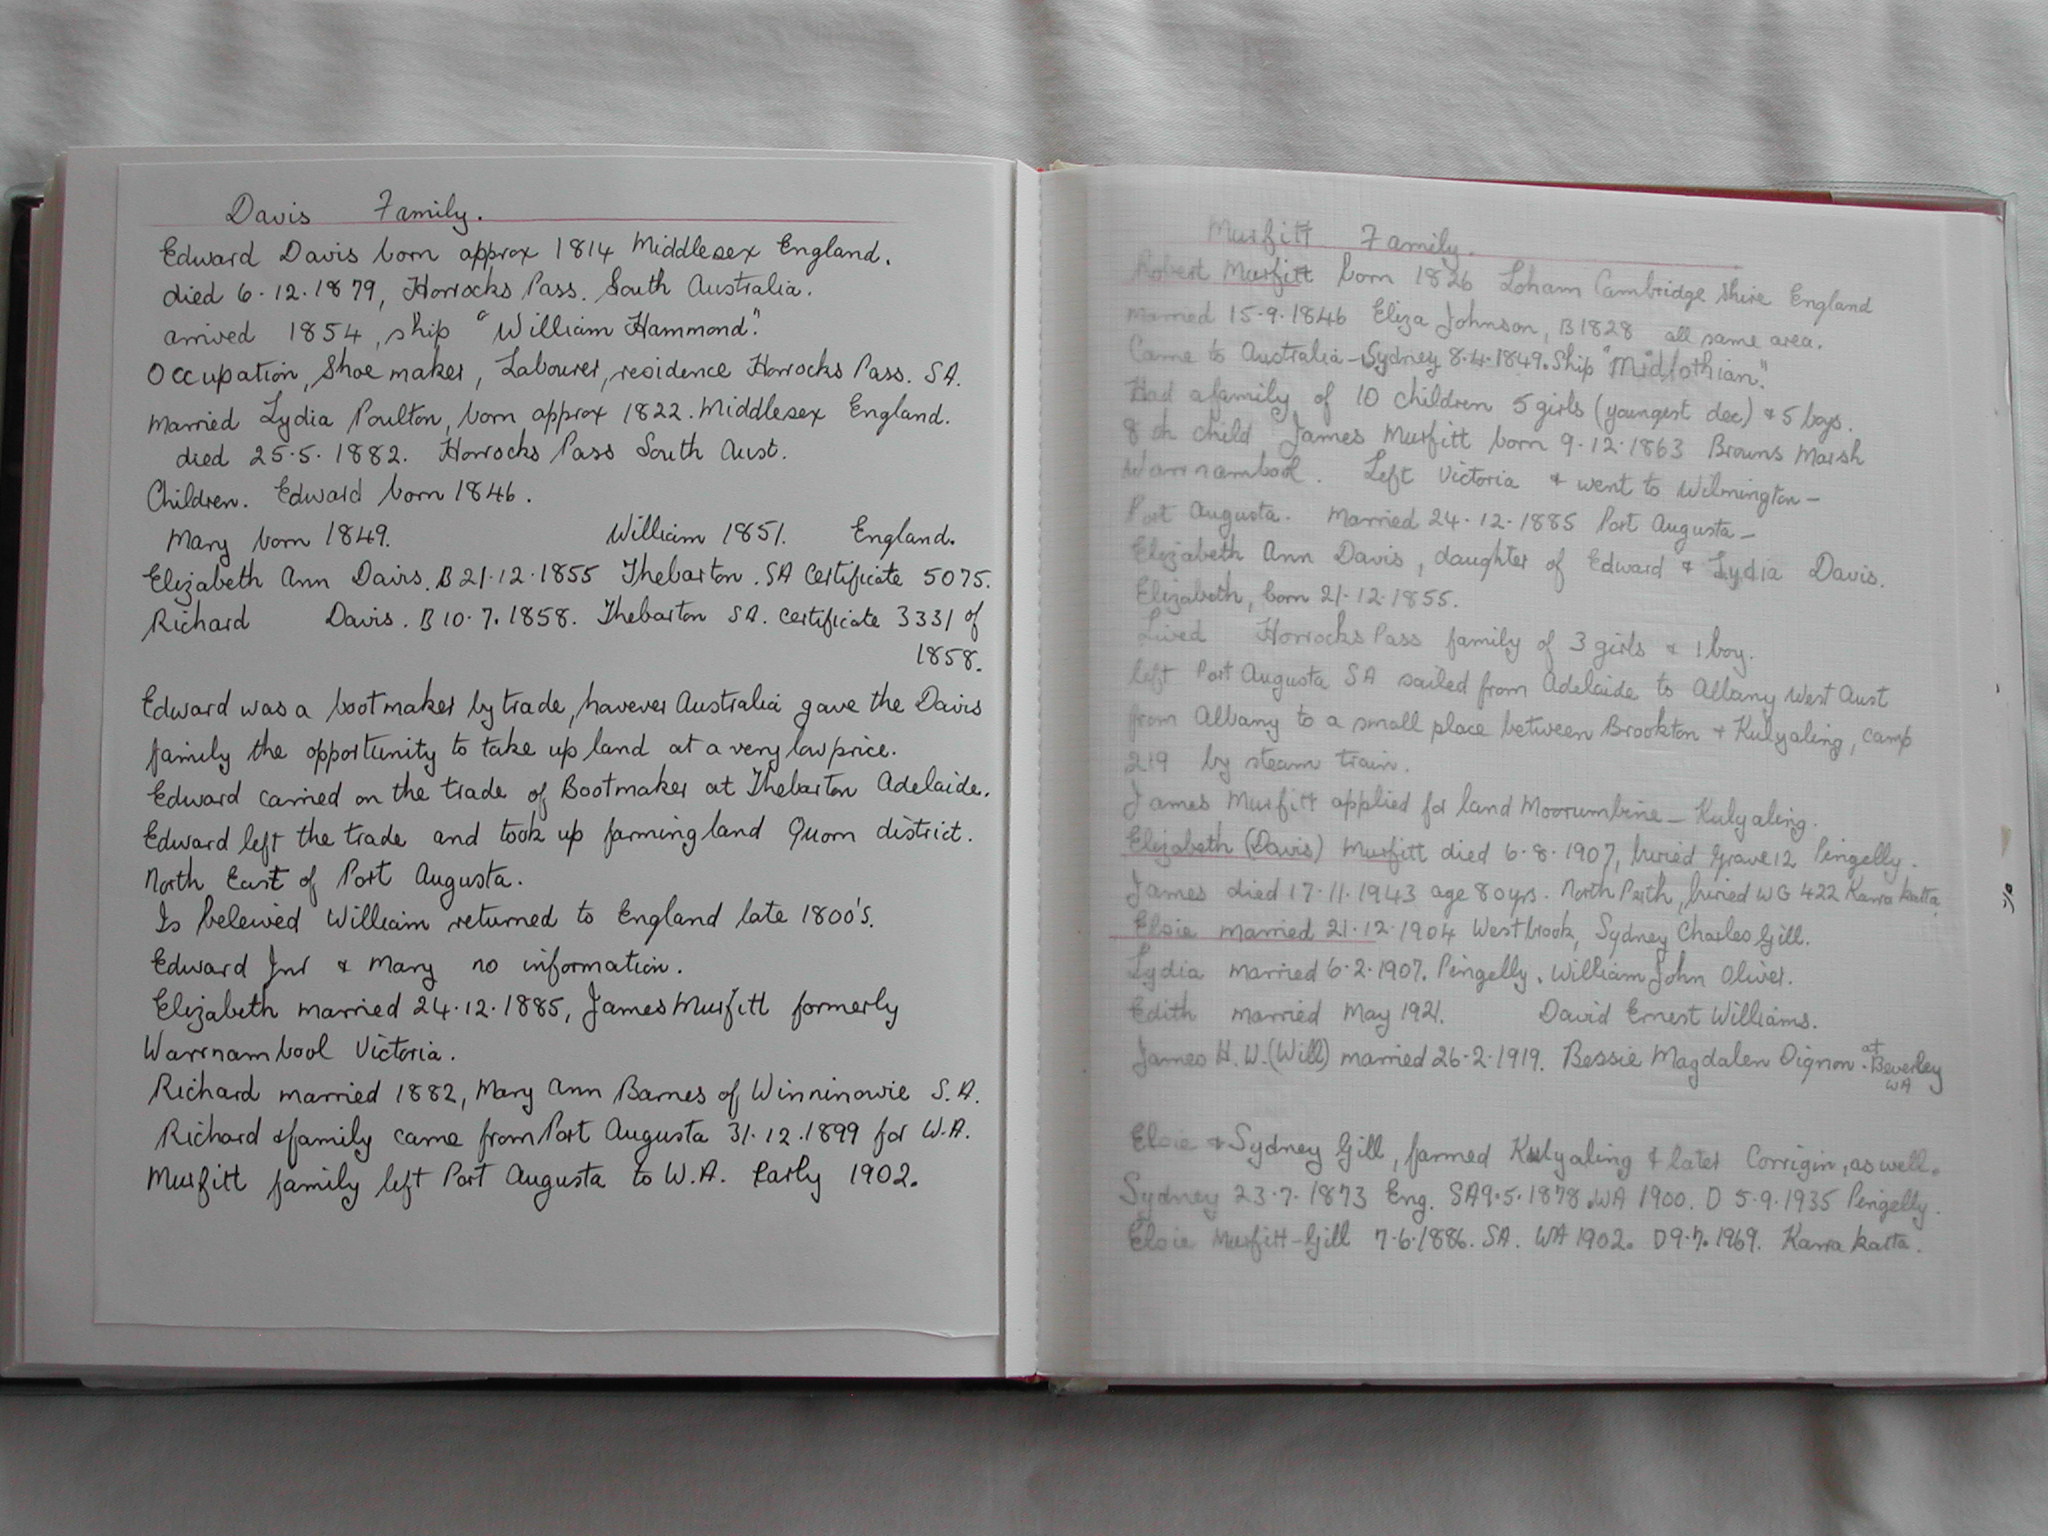 Davis Family.
Edward Davis born approx 1814 Middlesex England.
died 6.12.1879, Horrocks Pass. South Australia.
arrived 1854, ship "William Hammond".
Occupation, Shoe maker, Labourer, residence Horrocks Pass. SA.
Married Lydia Poulton, born approx 1822. Middlesex England.
died 25.5.1882. Horrocks Pass South Aust.
Children. Edward born 1846.
Mary born 1849. William 1851. England.
Elizabeth Ann Davis. B 21.12.1855 Thebarton. SA Certificate 5075.
Richard Davis. B 10.7.1858. Thebarton SA. Certificate 3331 of
1858.
Edward was a bootmaker by trade, however Australia gave the Davis
family the opportunity to take up land at a very low price.
Edward carried on the trade of Bootmaker at Thebarton Adelaide.
Edward left the trade and took up farming land Quorn district.
North East of Port Augusta.
Is beleived William returned to England late 1800's.
Edward Jnr & Mary no information.
Elizabeth married 24.12.1885, James Murfitt formerly
Warrnambool Victoria.
Richard married 1882, Mary Ann Barnes of Winninowie S.A.
Richard & family came from Port Augusta 31.12.1899 for W.A.
Murfitt family left Port Augusta to W.A. Early 1902.
Murfitt Family.
Robert Murfitt born 1826 Loham Cambridge shire England
married 15.9.1846 Eliza Johnson, B 1828 all same area.
Came to Australia - Sydney 8.4.1849. Ship "Midlothian".
Had a family of 10 children 5 girls (youngest dec) & 5 boys.
8th child James Murfitt born 9.12.1863 Browns Marsh
Warrnambool. Left Victoria & went to Wilmington -
Port Augusta. Married 24.12.1885 Port Augusta -
Elizabeth Ann Davis, daughter of Edward & Lydia Davis.
Elizabeth, born 21.12.1855.
Lived Horrocks Pass family of 3 girls & 1 boy.
left Port Augusta SA sailed from Adelaide to Albany West Aust
from Albany to a small place between Brookton & Kulyaling, camp
219 by steam train.
James Murfitt applied for land Moorumbine - Kulyaling.
Elizabeth (Davis) Murfitt died 6.8.1907, buried Grave 12 Pingelly.
James died 17.11.1943 age 80yrs. North Perth, buried WG 422 Karra katta.
Elsie married 21.12.1904 Westbrook, Sydney Charles Gill.
Lydia married 6.2.1907. Pingelly. William John Oliver.
Edith married May 1921. David Ernest Williams.
James H.W. (Will) married 26.2.1919. Bessie Magdalen Dignon. at Beverley
WA
Elsie & Sydney Gill, farmed Kulyaling & later Corrigin, as well.
Sydney 23.7.1873 Eng. SA 9.5.1878. WA 1900. D 5.9.1935 Pingelly.
Elsie Murfitt-Gill 7.6.1886. SA. WA 1902. D 9.7.1969. Karra katta.